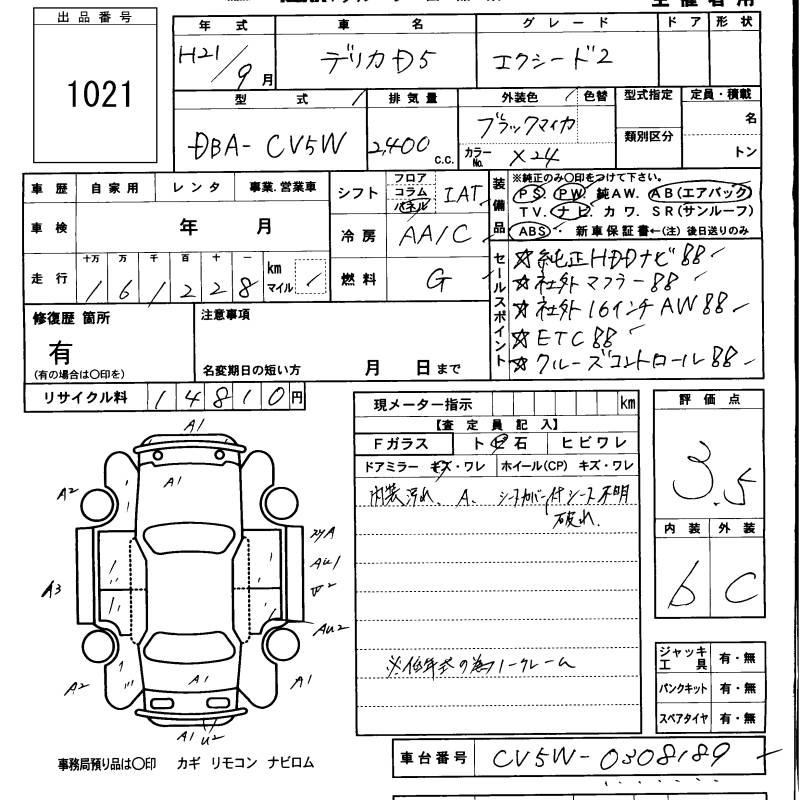 出品番号
1021
年式 車名 グレード ドア 形状
H21/9月 デリカD5 エクシード2
型式 排気量 外装色 色替 型式指定 定員・積載
DBA-CV5W 2,400 c.c. ブラックマイカ 名
カラーNo. X24 類別区分 トン
車歴 自家用 レンタ 事業.営業車
車検 年 月
走行 十万 万 千 百 十 一 km マイル
1 6 1 2 2 8
シフト フロア コラム パネル IAT
冷房 AA/C
燃料 G
装備品
※純正のみ〇印をつけて下さい。
PS. PW. 純AW. AB(エアバック)
TV. ナビ. カワ. SR(サンルーフ)
ABS・ 新車保証書←(注)後日送りのみ
セールスポイント
☆純正HDDナビ88
☆社外マフラー88
☆社外16インチAW88
☆ETC88
☆クルーズコントロール88
修復歴 箇所
有
(有の場合は〇印を)
注意事項
名変期日の短い方 月 日まで
リサイクル料 14810円
現メーター指示 km
【査定員記入】
Fガラス ト中石 ヒビワレ
ドアミラー キズ・ワレ ホイール(CP) キズ・ワレ
内装汚れ、A、シートカバー付シート不明
破れ、
※低年式の為ノークレーム
評価点
3.5
内装 外装
b C
A1
A1
A2
A3
A2
A1
A1
U2
A1
AU2
ジャッキ工具 有・無
パンクキット 有・無
スペアタイヤ 有・無
事務局預り品は〇印 カギ リモコン ナビロム
車台番号 CV5W-0308189